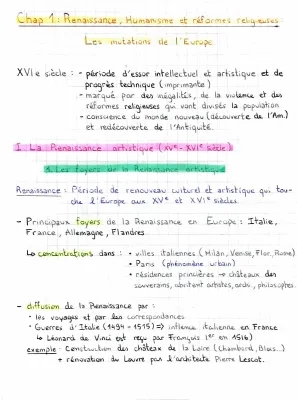 Chap 1 : Renaissance, Humanisme et réformes religieuses
Les mutations de l'Europe
XVIe siècle : - période d'essor intellectuel et artistique et de
progrès technique (imprimante)
- marqué par des inégalités, de la violence et des
réformes religieuses qui vont divisés la population
- conscience du monde nouveau (découverte de l'Am.)
et redécouverte de l'Antiquité.
I. La Renaissance artistique (XVe - XVIe siècle)
A. Les foyers de la Renaissance artistique
Renaissance : Période de renouveau culturel et artistique qui tou-
che l'Europe aux XVe et XVIe siècles
- Principaux foyers de la Renaissance en Europe : Italie,
France, Allemagne, Flandres
↳ concentrations dans : • villes italiennes (Milan, Venise, Flor., Rome)
• Paris (phénomène urbain)
• résidences princières → châteaux des
souverains, abritent artistes, archi., philosophes.
- diffusion de la Renaissance par :
• les voyages et par les correspondances
• Guerres d'Italie (1494 - 1515) ⇒ influence italienne en France
↳ Léonard de Vinci est reçu par François Ier en 1516)
exemple - Construction des châteaux de la Loire (Chambord, Blois...)
+ rénovation du Louvre par l'architecte Pierre Lescot.